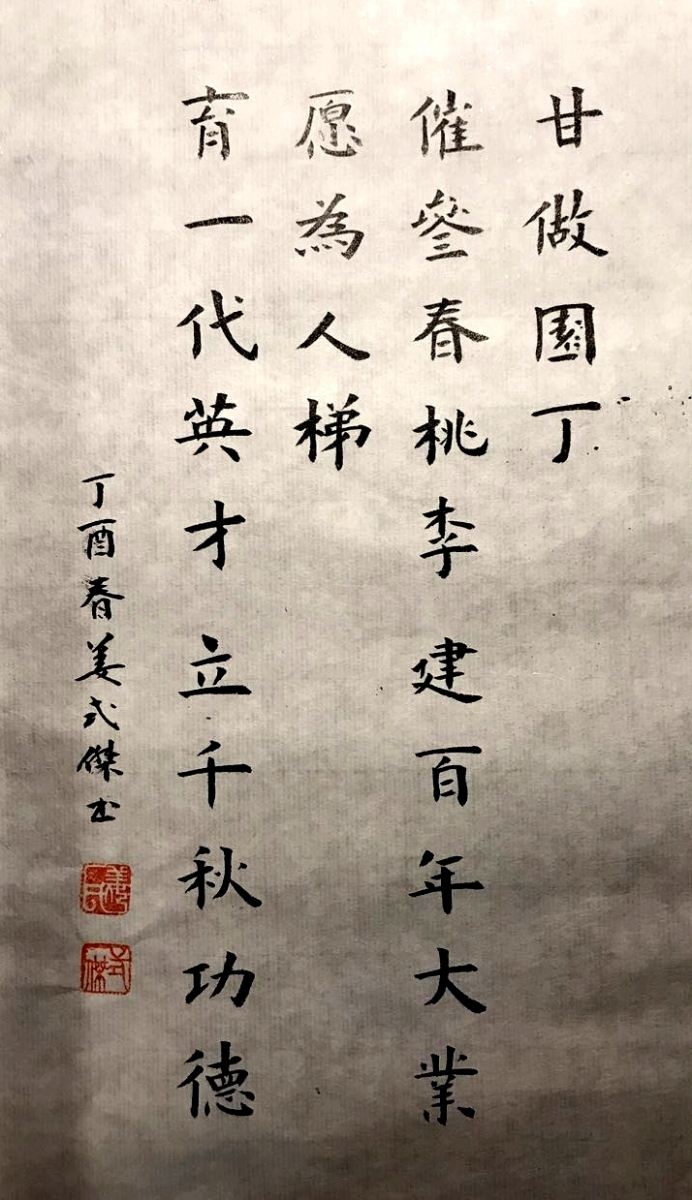 甘做園丁
催叄春桃李 建百年大業
愿為人梯
育一代英才 立千秋功德
丁酉春姜式傑书
式傑